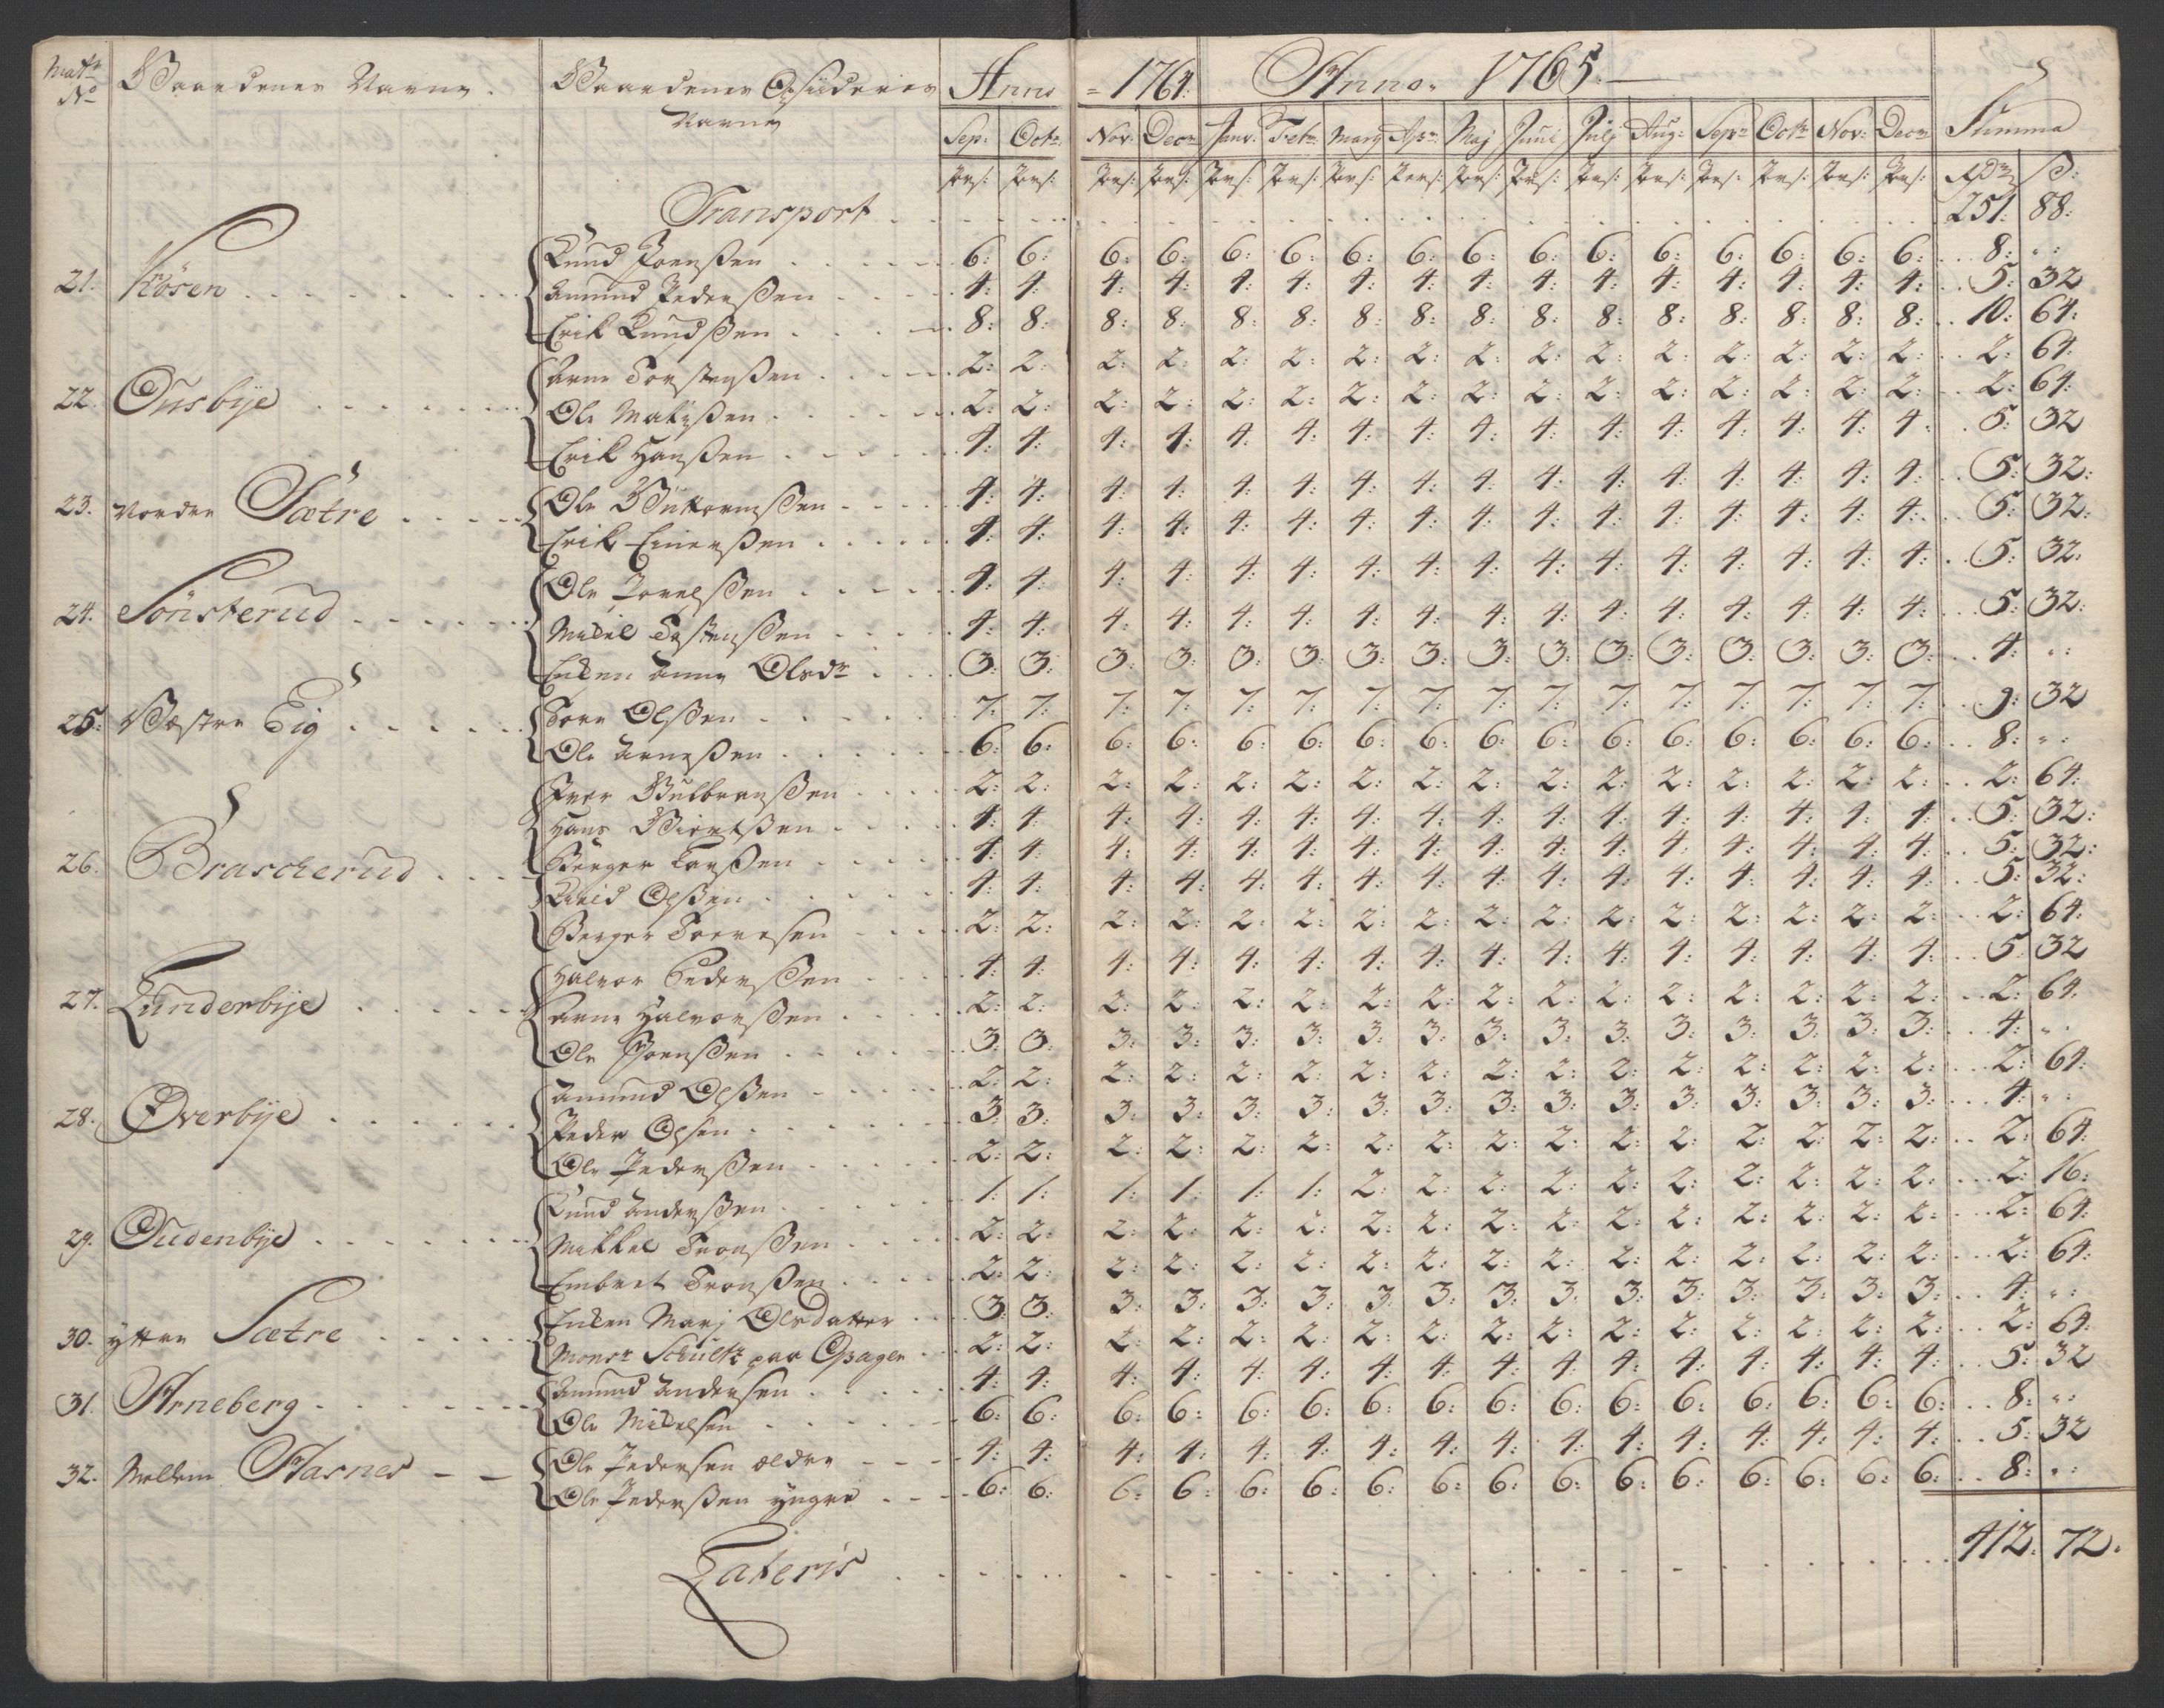 Matr No Gaardenes Navne. Gaardenes Opsiddernes Navne Anno = 1764. Anno. 1765. Summa
Sep: Octr. Nov: Decr Janr. Febr. Marij Apr: Maj Junii Julij Aug: Sepr Octr Nov: Decr
Pers: Pers: Pers: Pers: Pers: Pers: Pers: Pers: Pers: Pers: Pers: Pers: Pers: Pers: Pers: Pers: Rdr ß:
Transport 251: 88:
21. Kiøsen
Knud Joenßen 6: 6: 6: 6: 6: 6: 6: 6: 6: 6: 6: 6: 6: 6: 6: 6: 8: "
Amund Pederßen 4: 4: 4: 4: 4: 4: 4: 4: 4: 4: 4: 4: 4: 4: 4: 4: 5: 32
Erik Knudßen 8: 8: 8: 8: 8: 8: 8: 8: 8: 8: 8: 8: 8: 8: 8: 8: 10: 64:
22. Ousbye
Arne Torstenßen 2: 2: 2: 2: 2: 2: 2: 2: 2: 2: 2: 2: 2: 2: 2: 2: 2: 64:
Ole Matisßen 2: 2: 2: 2: 2: 2: 2: 2: 2: 2: 2: 2: 2: 2: 2: 2: 2: 64:
Erik Hanßen 4: 4: 4: 4: 4: 4: 4: 4: 4: 4: 4: 4: 4: 4: 4: 4: 5: 32
23. Nordre Sætre
Ole Guttormßen 4: 4: 4: 4: 4: 4: 4: 4: 4: 4: 4: 4: 4: 4: 4: 4: 5: 32:
Erik Einerßen 4: 4: 4: 4: 4: 4: 4: 4: 4: 4: 4: 4: 4: 4: 4: 4: 5: 32:
24. Sønsterud
Ole Povelßen 4: 4: 4: 4: 4: 4: 4: 4: 4: 4: 4: 4: 4: 4: 4: 4: 5: 32:
Mikel Tostenßen 4: 4: 4: 4: 4: 4: 4: 4: 4: 4: 4: 4: 4: 4: 4: 4: 5: 32:
Enken Anne Olsdr 3: 3: 3: 3: 3: 3: 3: 3: 3: 3: 3: 3: 3: 3: 3: 3: 4: "
25. Væstre Eig
Tore Olßen 7: 7: 7: 7: 7: 7: 7: 7: 7: 7: 7: 7: 7: 7: 7: 7: 9: 32
Ole Arneßen 6: 6: 6: 6: 6: 6: 6: 6: 6: 6: 6: 6: 6: 6: 6: 6: 8: "
26. Brascherud
Iver Gulbranßen 2: 2: 2: 2: 2: 2: 2: 2: 2: 2: 2: 2: 2: 2: 2: 2: 2: 64:
Hans 4: 4: 4: 4: 4: 4: 4: 4: 4: 4: 4: 4: 4: 4: 4: 4: 5: 32:
Børger Larßen 4: 4: 4: 4: 4: 4: 4: 4: 4: 4: 4: 4: 4: 4: 4: 4: 5: 32:
Olßen 4: 4: 4: 4: 4: 4: 4: 4: 4: 4: 4: 4: 4: 4: 4: 4: 5: 32:
Berger Torresen 2: 2: 2: 2: 2: 2: 2: 2: 2: 2: 2: 2: 2: 2: 2: 2: 2: 64:
27. Lunderbye
Halvor Pederßen 4: 4: 4: 4: 4: 4: 4: 4: 4: 4: 4: 4: 4: 4: 4: 4: 5: 32
Arne Halvorßen 2: 2: 2: 2: 2: 2: 2: 2: 2: 2: 2: 2: 2: 2: 2: 2: 2: 64:
Ole Joenßen 3: 3: 3: 3: 3: 3: 3: 3: 3: 3: 3: 3: 3: 3: 3: 3: 4: "
28. Øverbye
Amund Olßen 2: 2: 2: 2: 2: 2: 2: 2: 2: 2: 2: 2: 2: 2: 2: 2: 2: 64:
Peder Olsen 3: 3: 3: 3: 3: 3: 3: 3: 3: 3: 3: 3: 3: 3: 3: 3: 4: "
Ole Pederßen 2: 2: 2: 2: 2: 2: 2: 2: 2: 2: 2: 2: 2: 2: 2: 2: 2: 64:
29. Oudenbye
Knud Anderßen 1: 1: 1: 1: 1: 1: 2: 2: 2: 2: 2: 2: 2: 2: 2: 2: 2: 16:
Mikkel Tronßen 2: 2: 2: 2: 2: 2: 2: 2: 2: 2: 2: 2: 2: 2: 2: 2: 2: 64:
Embret Tronßen 2: 2: 2: 2: 2: 2: 2: 2: 2: 2: 2: 2: 2: 2: 2: 2: 2: 64:
30. ytter Sætre
Enken Mari Olsdatter 3: 3: 3: 3: 3: 3: 3: 3: 3: 3: 3: 3: 3: 3: 3: 3: 4: "
Monsr Schultz paa Opager 2: 2: 2: 2: 2: 2: 2: 2: 2: 2: 2: 2: 2: 2: 2: 2: 2: 64:
31. Arneberg
Amund Andersen 4: 4: 4: 4: 4: 4: 4: 4: 4: 4: 4: 4: 4: 4: 4: 4: 5: 32
Ole Mikelsen 6: 6: 6: 6: 6: 6: 6: 6: 6: 6: 6: 6: 6: 6: 6: 6: 8: "
32. Mellem Hasnes
Ole Pedersen ældre 4: 4: 4: 4: 4: 4: 4: 4: 4: 4: 4: 4: 4: 4: 4: 4: 5: 32
Ole Pederßen yngre 6: 6: 6: 6: 6: 6: 6: 6: 6: 6: 6: 6: 6: 6: 6: 6: 8: "
Lateris 412: 72: